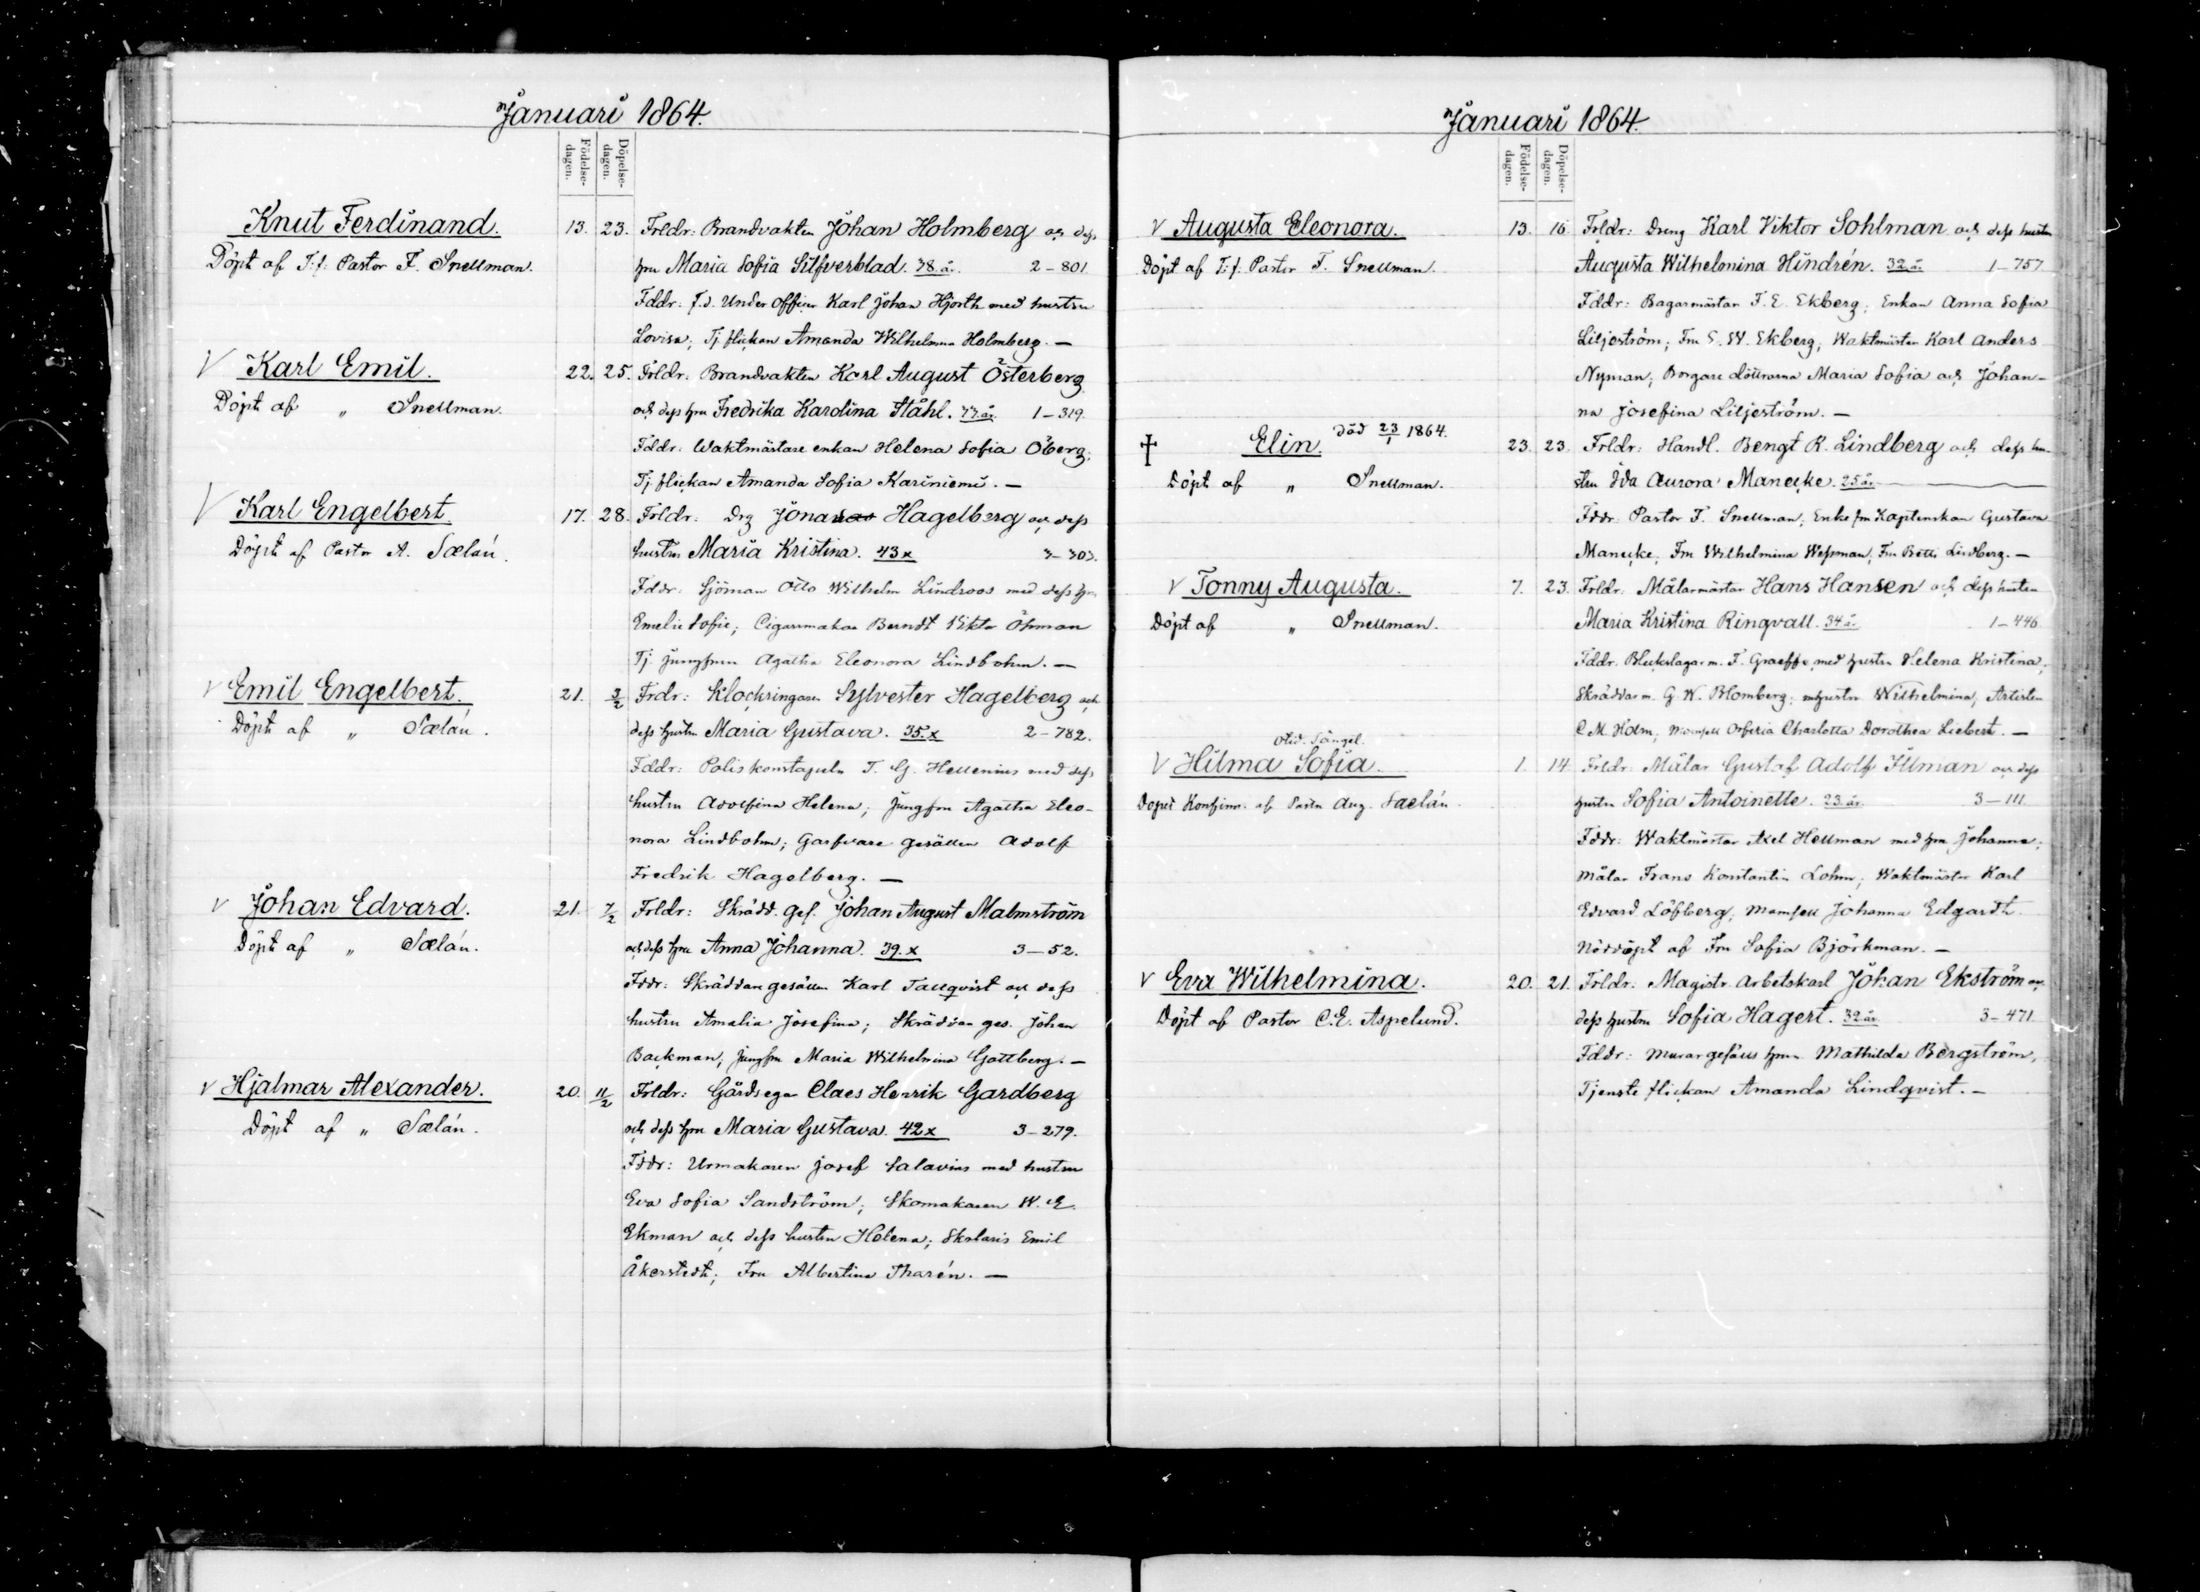 Januari 1864.
Födelse-dagen.
Döpelse-dagen.
Knut Ferdinand.
13. 23. Frldr: Brandvakten Johan Holmberg och dess
Döpt af T:f: Pastor F. Snellman.
hru Maria Sofia Silfverblad. 38 år. 2-801
Fddr: f.d. Under officer Karl Johan Hjorth med hustru
Lovisa; Tj. flickan Amanda Wilhelmina Holmberg. —
V Karl Emil.
22. 25. Frldr. Brandvakten Karl August Österberg
Döpt af " Snellman.
och dess hru Fredrika Karolina Ståhl. 1-319.
Fddr: Waktmästare enkan Helena Sofia Öberg;
Tj. flickan Amanda Sofia Kariniemi. —
V Karl Engelbert.
17. 28. Frldr: Drg Jonas Hagelberg och dess
Döpt af Pastor A. Sælán.
hustru Maria Kristina. 43 x 3-303.
Fddr: Sjöman Otto Wilhelm Lindroos med dess hru
Emelie Sofie; Cigarrmakar Berndt Viktor Öhman
Tj. jungfrun Agatha Eleonora Lindbohm. —
V Emil Engelbert.
21. 3/2 Frldr: Klockringaren Sylvester Hagelberg och
Döpt af " Sælán.
dess hustru Maria Gustava. 35. x 2-782.
Fddr: Poliskonstapeln T. G. Hellenius med dess
hustru Adolfina Helena; Jungfru Agatha Eleo-
nora Lindbohm; Garfvare gesällen Adolf
Fredrik Hagelberg. —
V Johan Edvard.
21. 7/2 Frldr: Skrädd. ges. Johan August Malmström
Döpt af " Sælán.
och dess hru Anna Johanna. 39. x 3-52.
Fddr: Skräddare gesällen Karl Tallqvist och dess
hustru Amalia Josefina; Skräddar ges. Johan
Backman, jungfru Maria Wilhelmina Gottberg. —
V Hjalmar Alexander.
20. 11/2 Frldr: Gårdsegar Claes Henrik Gardberg
Döpt af " Sælán.
och dess hru Maria Gustava. 42 x 3-279.
Fddr: Urmakaren Josef Salavius med hustru
Eva Sofia Sandström; Skomakaren W. E.
Ekman och dess hustru Helena; Skolaris Emil
Åkerstedt; Fru Albertina Tharén. —
Januari 1864.
Födelse-dagen.
Döpelse-dagen.
V Augusta Eleonora.
13. 16. Frldr: Dreng Karl Viktor Sohlman och dess hustru
Döpt af T:f: Pastor F. Snellman.
Augusta Wilhelmina Hindrén. 32 år. 1-757
Fddr: Bagarmästar F. E. Ekberg; Enkan Anna Sofia
Liljeström; Fru E. W. Ekberg; Waktmästar Karl Anders
Nyman; Borgare döttrarna Maria Sofia och Johan-
na Josefina Liljeström. —
Död 23/1 1864.
† Elin.
23. 23. Frldr: Handl. Bengt R. Lindberg och dess hu-
Döpt af " Snellman.
stru Ida Aurora Manecke. 25 år
Fddr: Pastor F. Snellman; Enkefru Kaptenskan Gustava
Manecke, Fru Wilhelmina Wessman, Fru Betti Lindberg. —
V Tonny Augusta.
7. 23. Frldr. Målarmästar Hans Hansen och dess hustru
Döpt af " Snellman.
Maria Kristina Ringvall. 34 år. 1-446
Fddr. Bleckslagarm. F. Graeffe med hustru Helena Kristina;
Skräddarm. G. W. Blomberg m. hustru Wilhelmina; Artisten
C. M. Holm; Mamsell Charlotta Dorothea Liebert. —
V Hilma Sofia.
1. 14. Frldr. Målar Gustaf Adolf Illman och dess
Döpet Konfirm. af Pastor Aug. Saelán.
hustru Sofia Antoinette. 23 år. 3-111.
Fddr: Waktmästar Axel Hellman med hru Johanna;
Målar Frans Konstantin Lohm; Waktmästar Karl
Edvard Löfberg, Mamsell Johanna Edgardt.
Nöddöpt af Fru Sofia Björkman. —
V Eva Wilhelmina.
20. 21. Frldr: Magistr. arbetskarl Johan Ekström och
Döpt af Pastor C. E. Aspelund.
dess hustru Sofia Hagert. 32 år 3-471
Fddr: Murargesäll hrun Mathilda Bergström,
Tjenste flickan Amanda Lindqvist. —